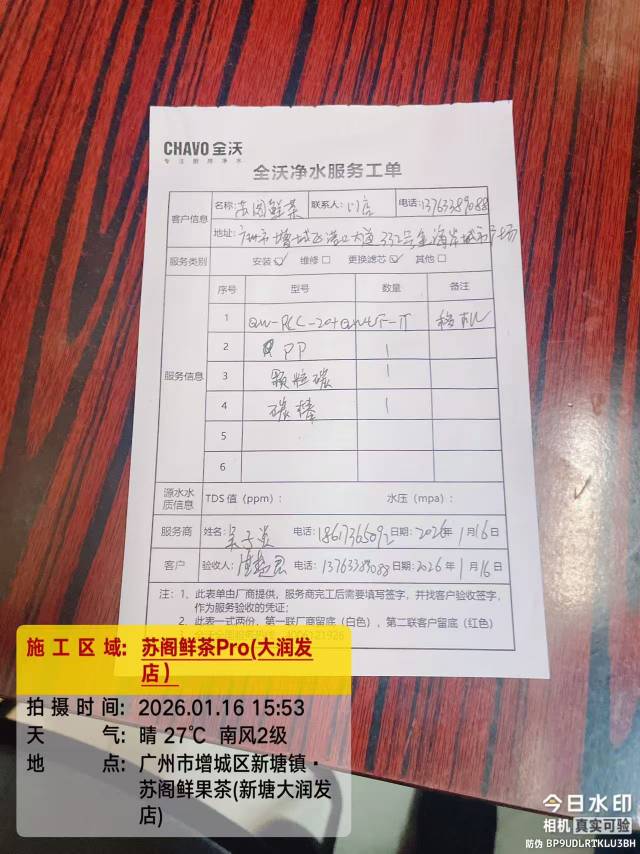 CHAVO 全沃
专注厨房净水
全沃净水服务工单
客户信息
名称: 苏阁鲜茶 联系人: 门店 电话: 13763389088
地址: 广州市增城区港口大道332号金海岸城市广场
服务类别 安装☑ 维修☐ 更换滤芯☑ 其他☐
服务信息
序号 型号 数量 备注
1 移机
2 PP 1
3 颗粒碳 1
4 碳棒 1
5
6
源水水质信息 TDS 值（ppm）: 水压（mpa）:
服务商 姓名: 电话: 18617365092 日期: 2026年1月16日
客户 验收人: 电话: 13763389088 日期: 2026年1月16日
注：1、此表单由厂商提供，服务商完工后需要填写签字，并找客户验收签字，
作为服务验收的凭证；
2、此表一式两份，第一联厂商留底（白色），第二联客户留底（红色）
施工区域: 苏阁鲜茶Pro(大润发
店)
拍摄时间: 2026.01.16 15:53
天气: 晴 27℃ 南风2级
地点: 广州市增城区新塘镇·
苏阁鲜果茶(新塘大润发
店)
今日水印
相机 真实可验
防伪 BP9UDLRTKLU3BH